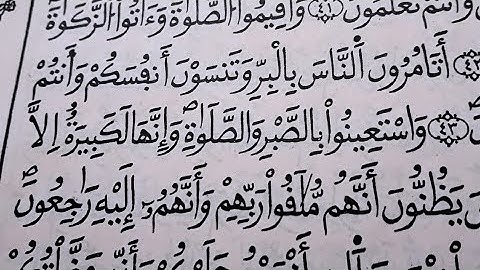 وَأَنتُمْ تَعْلَمُونَ ٤١ وَأَقِيمُوا۟ الصَّلَوٰةَ وَءَاتُوا۟ الزَّكَوٰةَ
٤٢ أَتَامُرُونَ اَ۬لنَّاسَ بِالْبِرِّ وَتَنسَوْنَ أَنفُسَكُمْ وَأَنتُمْ
٤٣ وَاسْتَعِينُوا۟ بِالصَّبْرِ وَالصَّلَوٰةِ وَإِنَّهَا لَكَبِيرَةٌ إِلَّا
يَظُنُّونَ أَنَّهُم مُّلَٰقُوا۟ رَبِّهِمْ وَأَنَّهُمُۥٓ إِلَيْهِ رَٰجِعُونَ